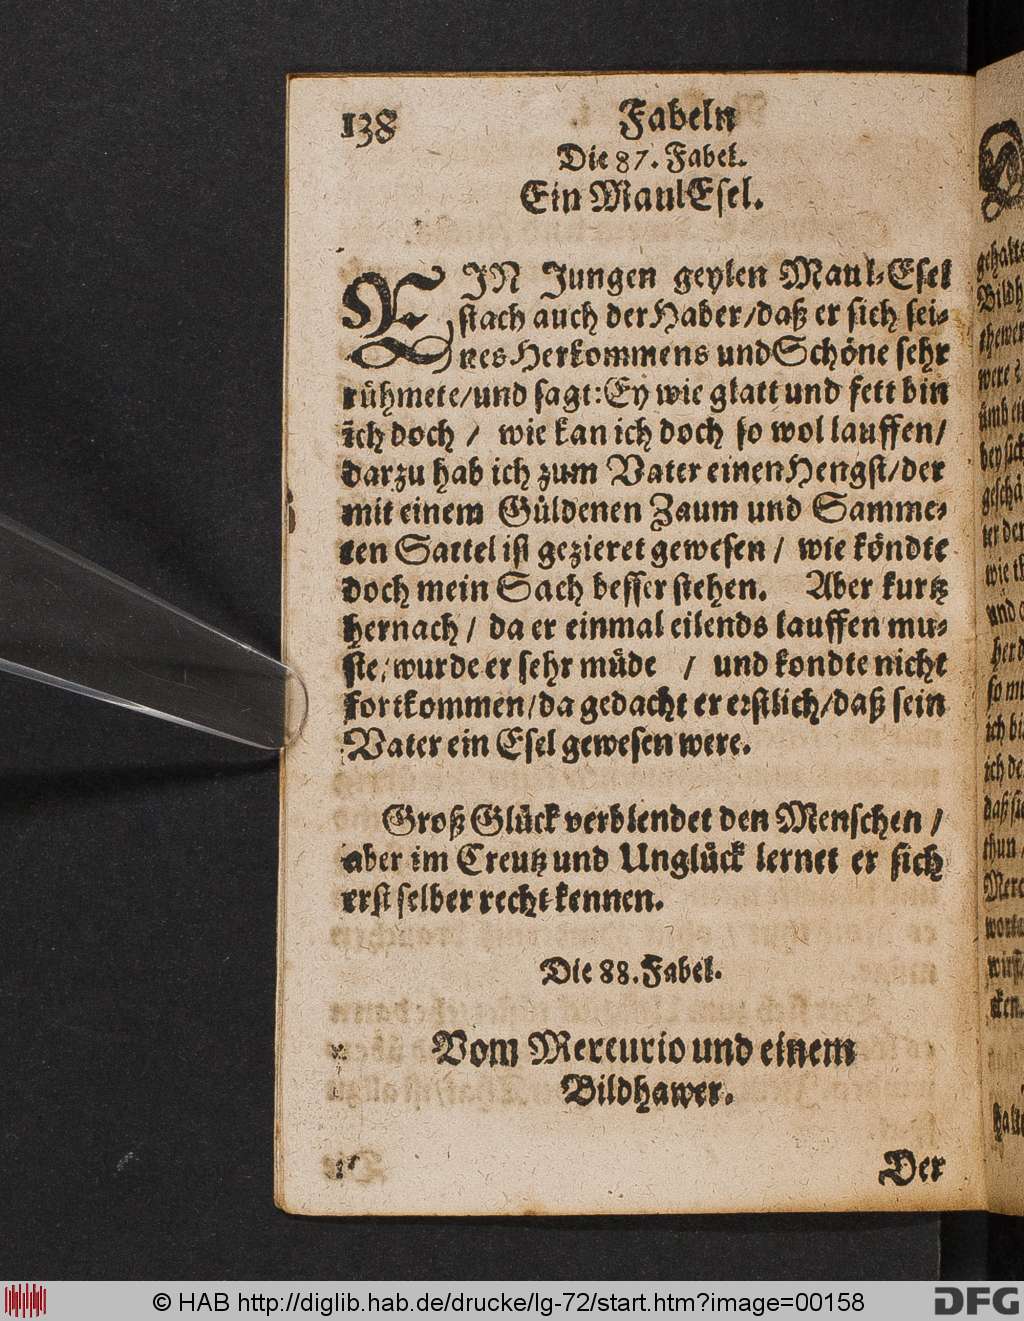 138 Fabeln
Die 87. Fabel.
Ein MaulEsel.
EIN Jungen geylen Maul-Esel
stach auch der Haber/daß er sich sei-
nes Herkommens und Schöne sehr
rühmete/und sagt:Ey wie glatt und fett bin
ich doch / wie kan ich doch so wol lauffen/
darzu hab ich zum Vater einen Hengst/der
mit einem Güldenen Zaum und Samme-
ten Sattel ist gezieret gewesen / wie köndte
doch mein Sach besser stehen. Aber kurtz
hernach / da er einmal eilends lauffen mu-
ste/wurde er sehr müde / und kondte nicht
fortkommen/da gedacht er erstlich/daß sein
Vater ein Esel gewesen were.
Groß Glück verblendet den Menschen /
aber im Creutz und Unglück lernet er sich
erst selber recht kennen.
Die 88. Fabel.
Vom Mercurio und einem
Bildhawer.
Der
© HAB http://diglib.hab.de/drucke/lg-72/start.htm?image=00158
DFG